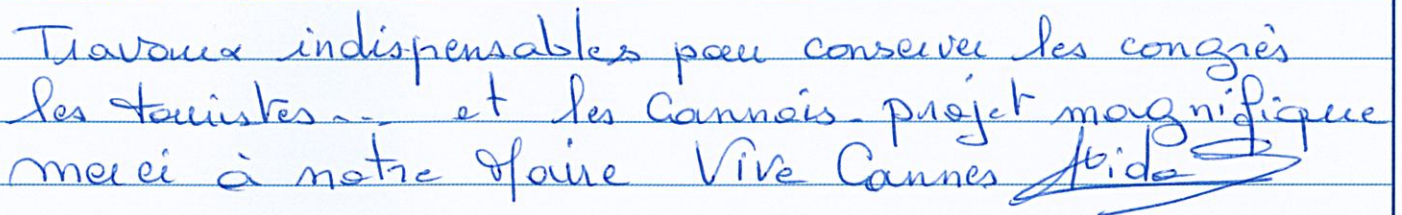 Travaux indispensables pour conserver les congrès
les touristes... et les Cannois. projet magnifique
merci à notre Maire Vive Cannes